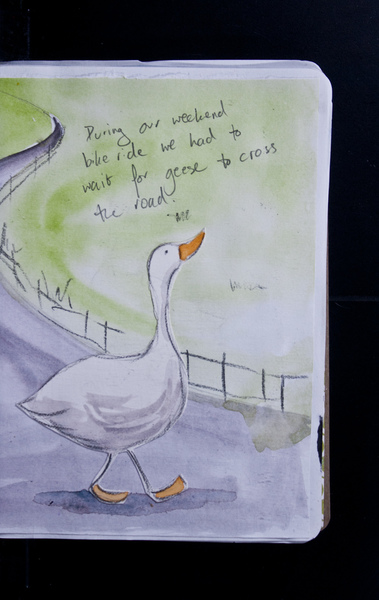 During our weekend
bike ride we had to
wait for geese to cross
the road.